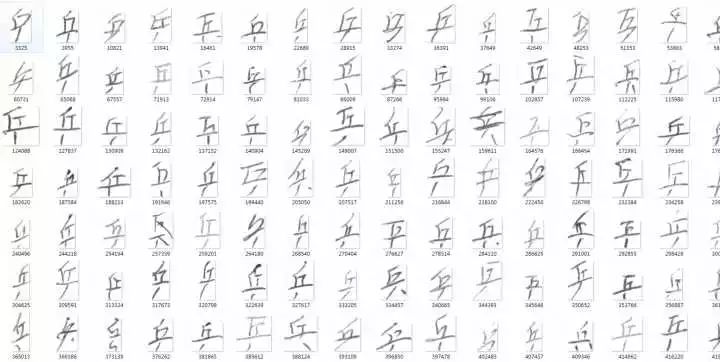 乒 乒 乒 乒 乒 乒 乒 乒 乒 乒 乒 乒 乒 乒 乒
10821 13941 16461 19578 22680 28915 33274 36391 37649 42649 48253
乒 乒 乒 乒 乒 乒 乒 乒 乒 乒 乒 乒 乒 乒 乒
60731 65068 67557 71913 72914 79147 81033 87266 95984 99106 102857 107239 112225 115980
乒 乒 乒 乒 乒 乒 乒 乒 乒 乒 乒 乒 乒 乒 乒
124088 127837 130906 132162 137152 145289 149007 151500 155247 159611 164576 166454 171991 176366
乒 乒 乒 乒 乒 乒 乒 乒 乒 乒 乒 乒 乒 乒 乒
182620 187584 188213 191946 197575 199440 205050 207517 211256 216844 218100 222456 226798 232384 234258
乒 乒 乒 乒 乒 乒 乒 乒 乒 乒 乒 乒 乒 乒 乒
240496 244218 254194 257339 259201 264180 268540 270404 276627 278514 284110 286625 291001 292855 298426
乒 乒 乒 乒 乒 乒 乒 乒 乒 乒 乒 乒 乒 乒 乒
304625 309591 313324 317673 320798 322639 327617 333205 334457 340665 344391 345648 350652 353764 356887
乒 乒 乒 乒 乒 乒 乒 乒 乒 乒 乒 乒 乒 乒 乒
366013 366186 373139 376262 381865 385612 388124 393109 396850 397478 402483 407457 409346 414962 416220